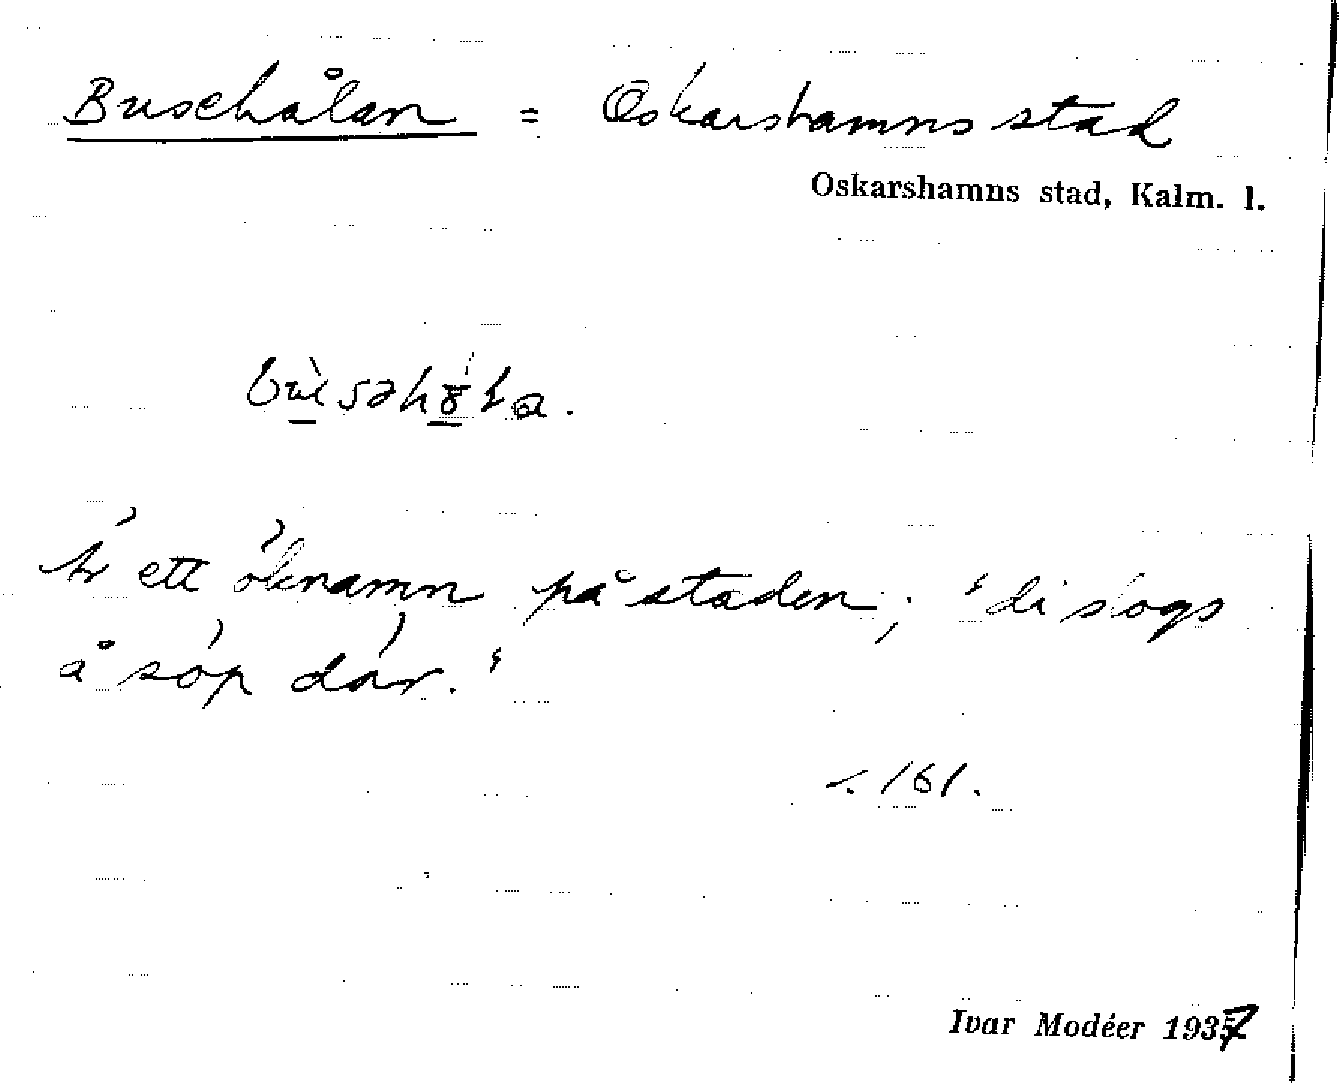 Busehålan = Oskarshamns stad
Oskarshamns stad, Kalm. l.
är ett öknamn på staden; "di slogs
å söp där."
s. 161.
Ivar Modéer 1937